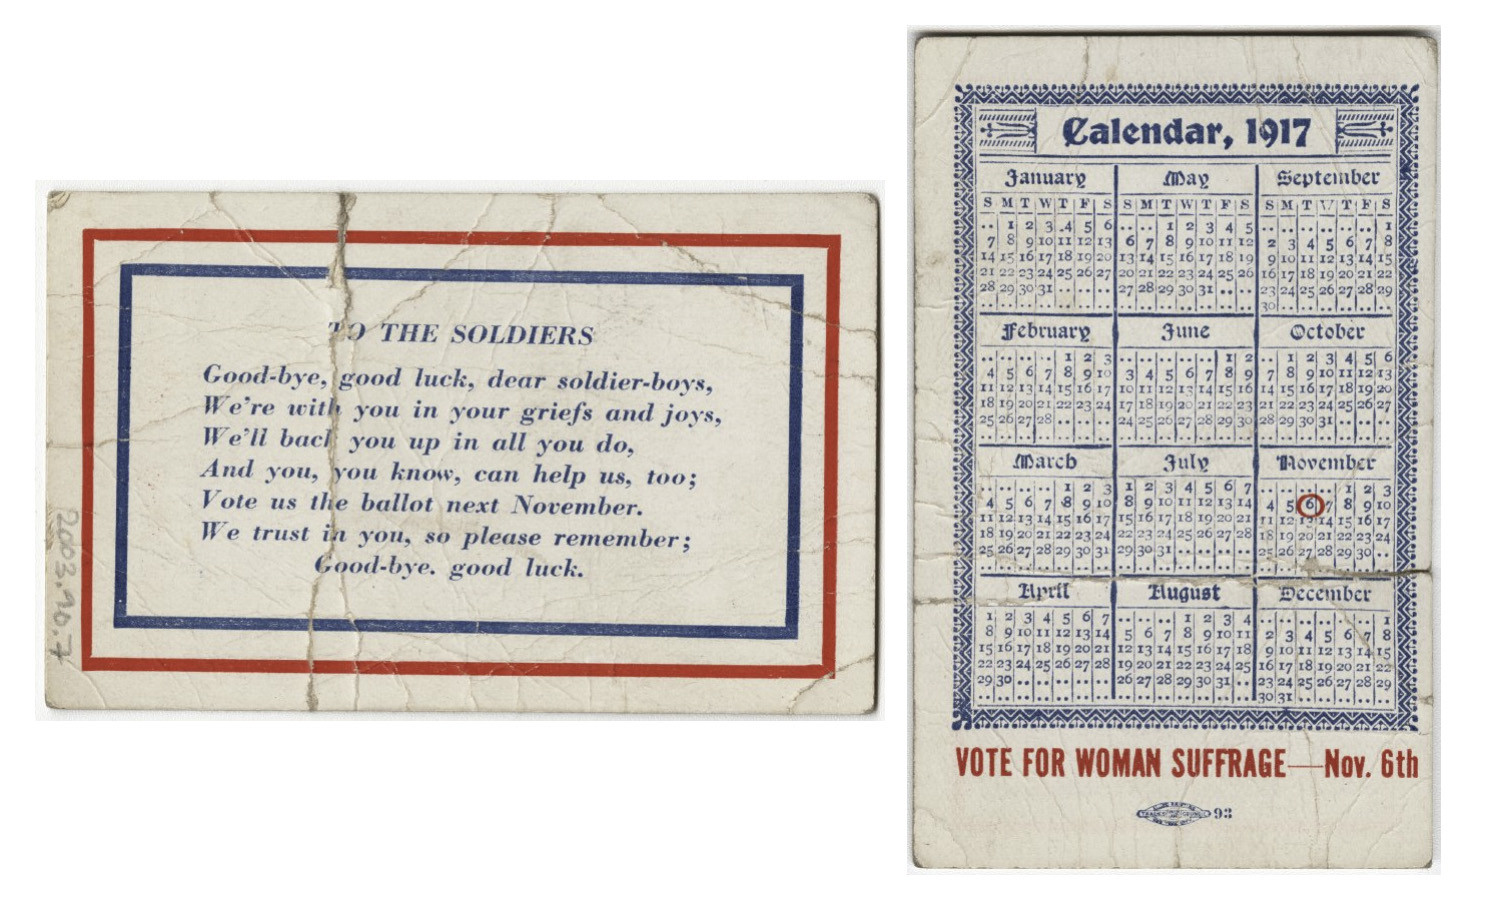 TO THE SOLDIERS
Good-bye, good luck, dear soldier-boys,
We're with you in your griefs and joys,
We'll back you up in all you do,
And you, you know, can help us, too;
Vote us the ballot next November.
We trust in you, so please remember;
Good-bye. good luck.
2003.90.7
Calendar, 1917
January
S M T W T F S
1 2 3 4 5 6
7 8 9 10 11 12 13
14 15 16 17 18 19 20
21 22 23 24 25 26 27
28 29 30 31
February
1 2 3
4 5 6 7 8 9 10
11 12 13 14 15 16 17
18 19 20 21 22 23 24
25 26 27 28
March
1 2 3
4 5 6 7 8 9 10
11 12 13 14 15 16 17
18 19 20 21 22 23 24
25 26 27 28 29 30 31
April
1 2 3 4 5 6 7
8 9 10 11 12 13 14
15 16 17 18 19 20 21
22 23 24 25 26 27 28
29 30
May
S M T W T F S
1 2 3 4 5
6 7 8 9 10 11 12
13 14 15 16 17 18 19
20 21 22 23 24 25 26
27 28 29 30 31
June
1 2
3 4 5 6 7 8 9
10 11 12 13 14 15 16
17 18 19 20 21 22 23
24 25 26 27 28 29 30
July
1 2 3 4 5 6 7
8 9 10 11 12 13 14
15 16 17 18 19 20 21
22 23 24 25 26 27 28
29 30 31
August
1 2 3 4
5 6 7 8 9 10 11
12 13 14 15 16 17 18
19 20 21 22 23 24 25
26 27 28 29 30 31
September
S M T W T F S
1
2 3 4 5 6 7 8
9 10 11 12 13 14 15
16 17 18 19 20 21 22
23 24 25 26 27 28 29
30
October
1 2 3 4 5 6
7 8 9 10 11 12 13
14 15 16 17 18 19 20
21 22 23 24 25 26 27
28 29 30 31
November
1 2 3
4 5 6 7 8 9 10
11 12 13 14 15 16 17
18 19 20 21 22 23 24
25 26 27 28 29 30
December
1
2 3 4 5 6 7 8
9 10 11 12 13 14 15
16 17 18 19 20 21 22
23 24 25 26 27 28 29
30 31
VOTE FOR WOMAN SUFFRAGE—Nov. 6th
93